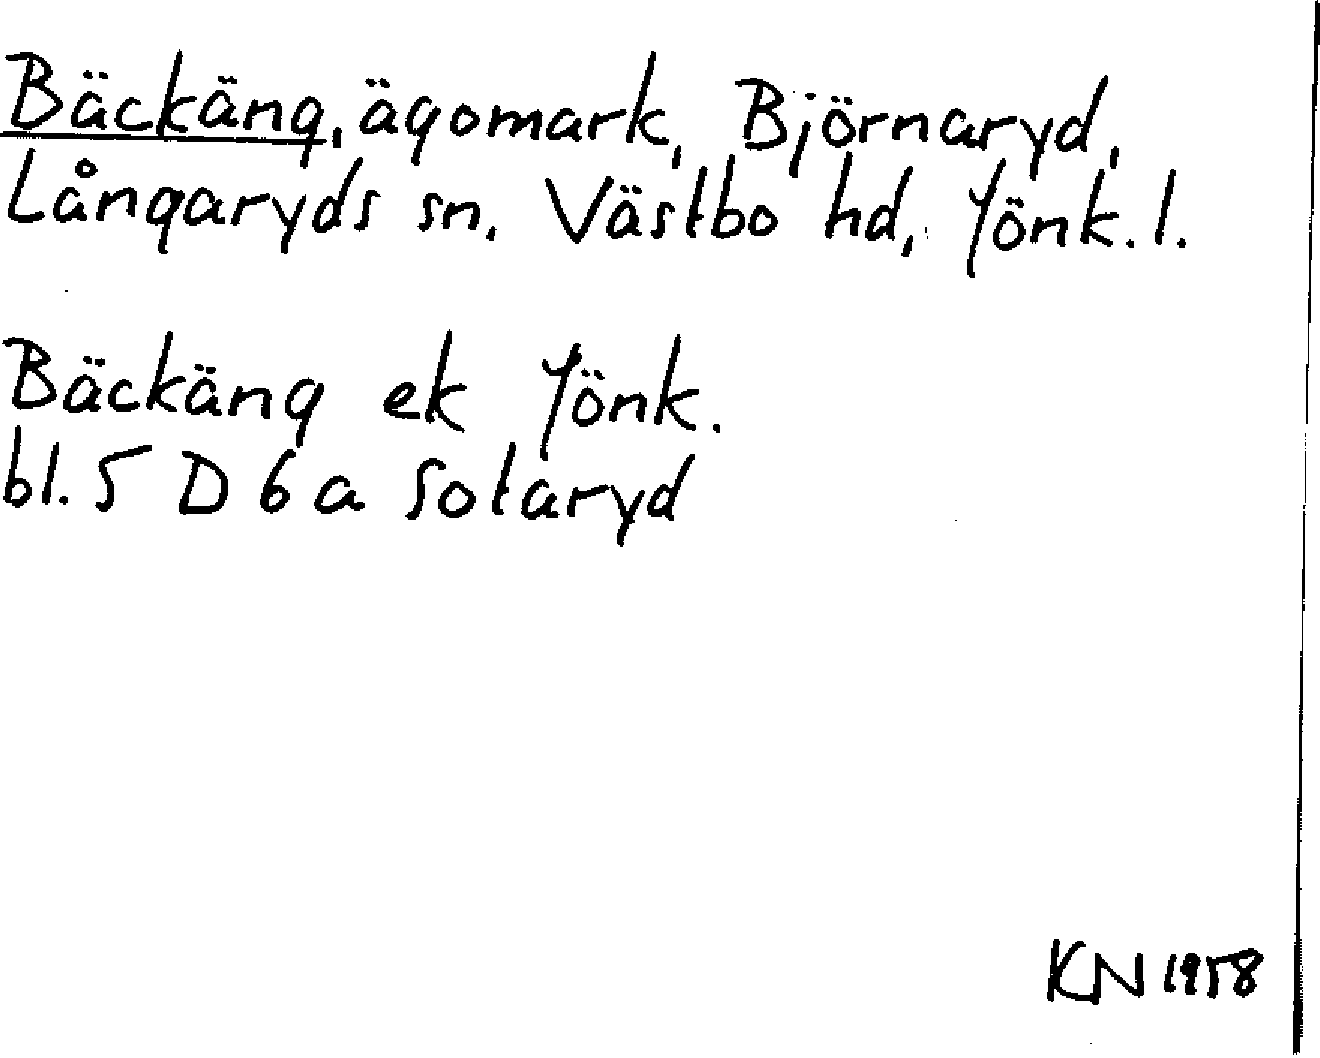 Bäckäng, ägomark, Björnaryd,
Långaryds sn, Västbo hd, Jönk.l.
Bäckäng ek Jönk.
bl. 5 D 6 a Sotaryd
KN 1958